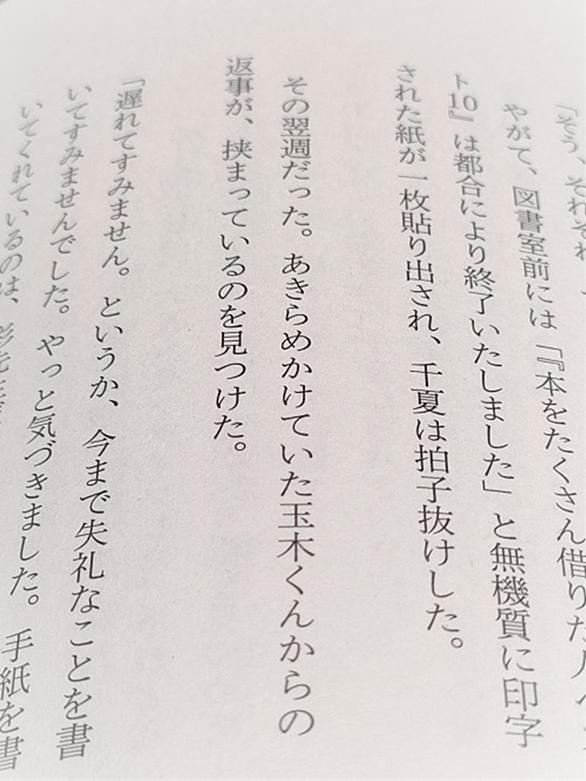 「そう、それぞれ
やがて、図書室前には「『本をたくさん借りた人ベ
ト10』は都合により終了いたしました」と無機質に印字
された紙が一枚貼り出され、千夏は拍子抜けした。
その翌週だった。あきらめかけていた玉木くんからの
返事が、挟まっているのを見つけた。
「遅れてすみません。というか、今まで失礼なことを書
いてすみませんでした。やっと気づきました。手紙を書
いてくれているのは、